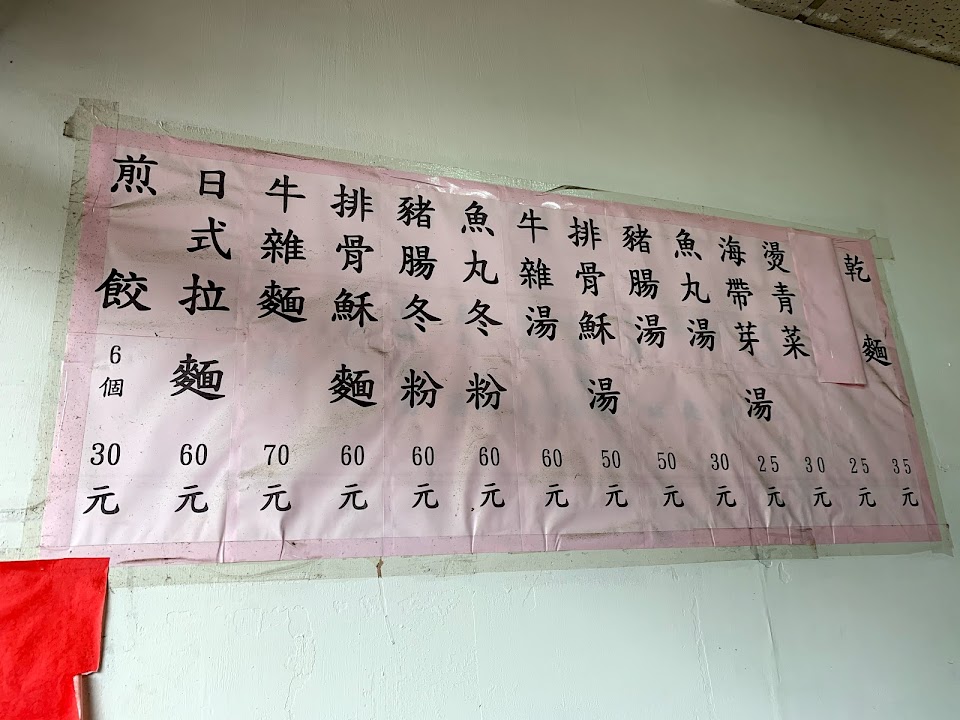 乾麵35元
25元
燙青菜30元
海帶芽湯25元
魚丸湯30元
豬腸湯50元
排骨穌湯50元
牛雜湯60元
魚丸冬粉60元
豬腸冬粉60元
排骨穌麵60元
牛雜麵70元
日式拉麵60元
煎餃6個30元